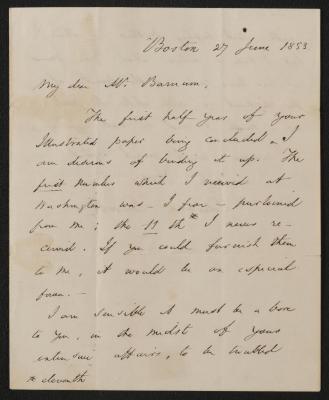 Boston 27 June 1853
My dear Mr. Barnum,
The first half year of your
Illustrated paper being concluded, I
am desirous of binding it up. The
first number which I received at
Washington was - I fear - purloined
from me; the 11th* I never re-
ceived. If you could furnish them
to me, it would be an especial
favor. -
I am sensible it must be a bore
to you, in the midst of your
extensive affairs, to be troubled
* eleventh